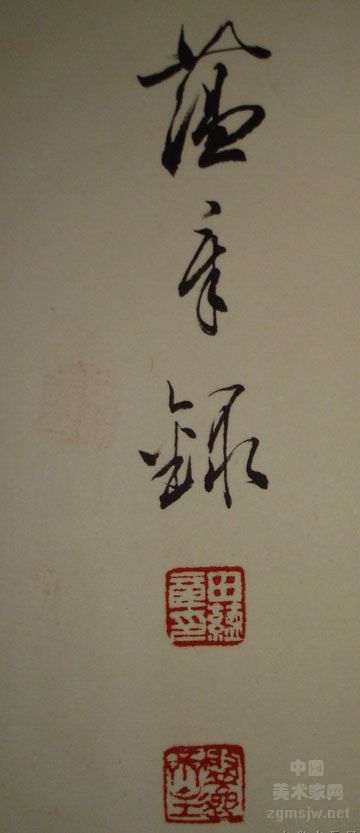 蘊章錄
田蘊章印
中国
美术家网
zgmsjw.net